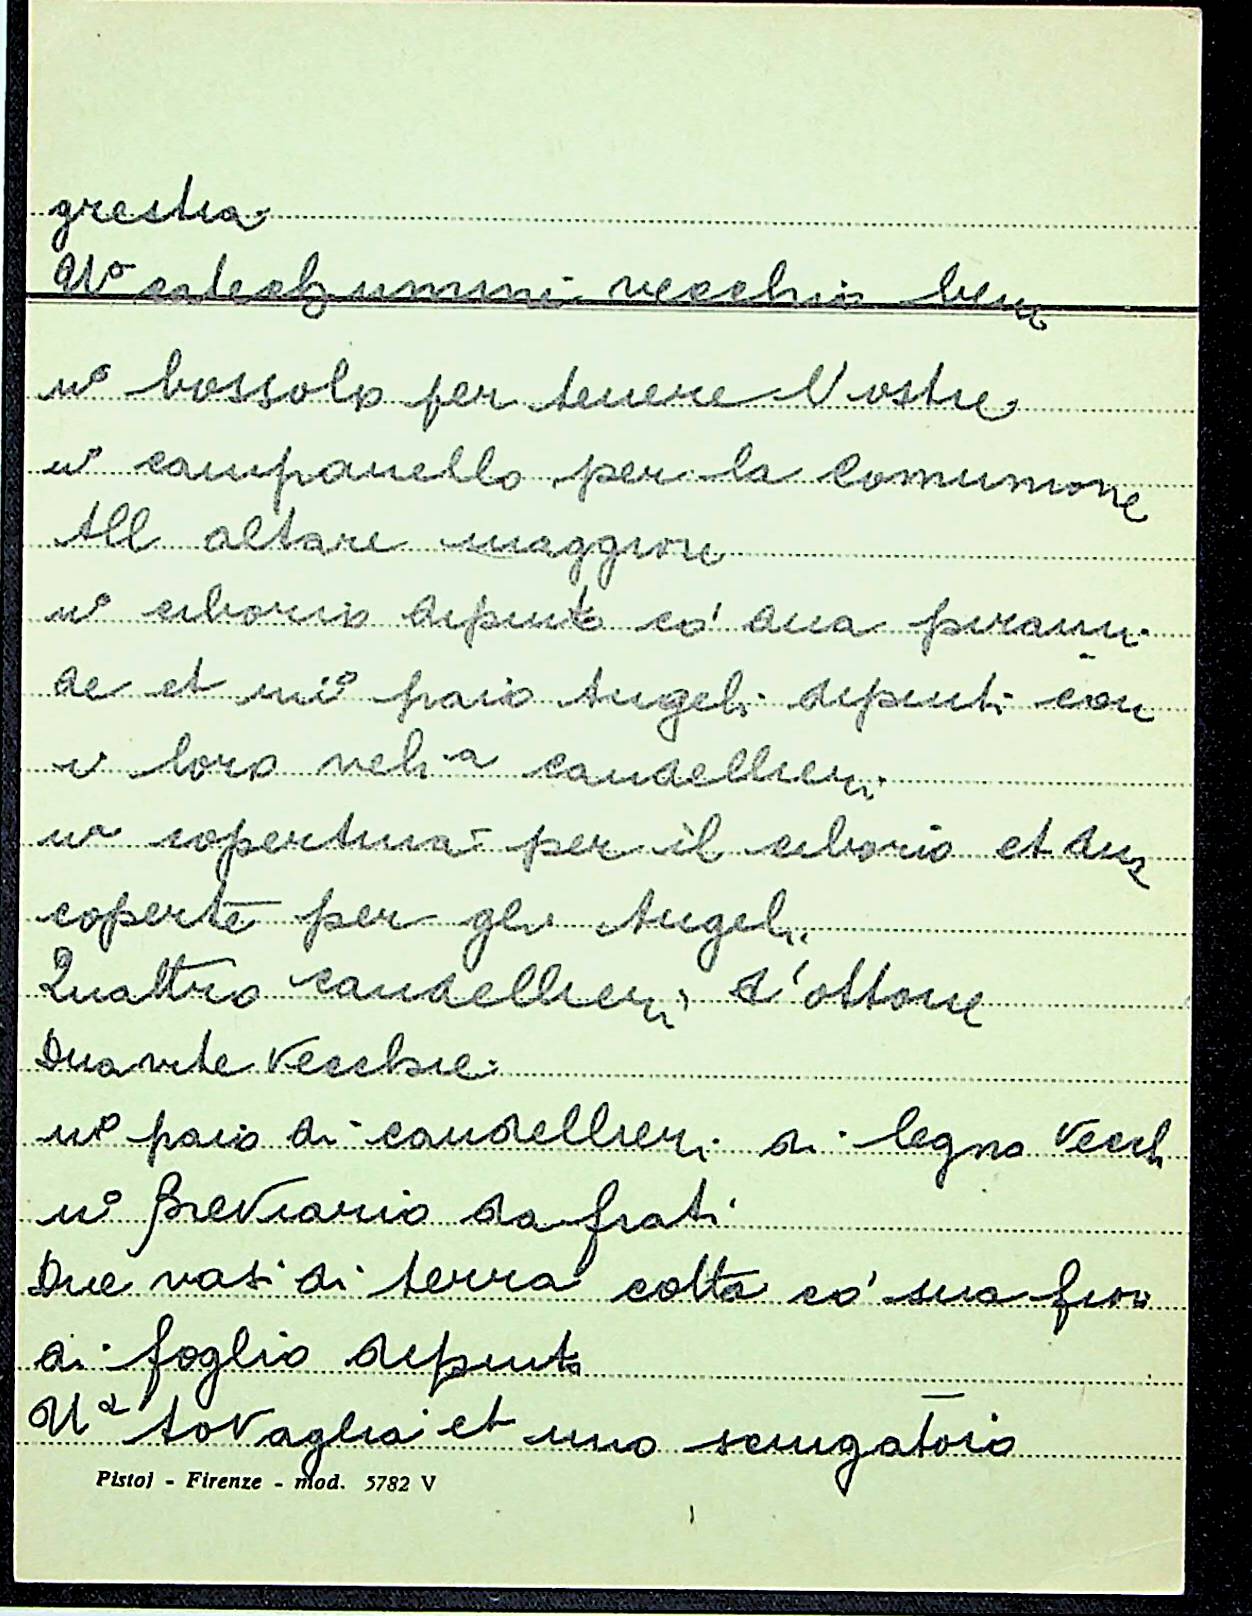 grestia
Uº catechummini vecchio bene
uº bossolo per tenere l'ostie
uº campanello per la Comunione
All altare maggiore
uº ciborio depinto co' dua pirami-
de et uiº paio Angeli depinti con
i loro veli a candellieri
uª copertina per il ciborio et due
coperte per gli Angeli.
Quattro candellieri d'ottone
Dua vite Vecchie
uº paio di candellieri di legno Vecch
uº Breviario da frati
Due vasi di terra cotta co' sua fiori
di foglio depinto
Uª toVaglia et uno sciugatoio
Pistoj - Firenze - mod. 5782 V